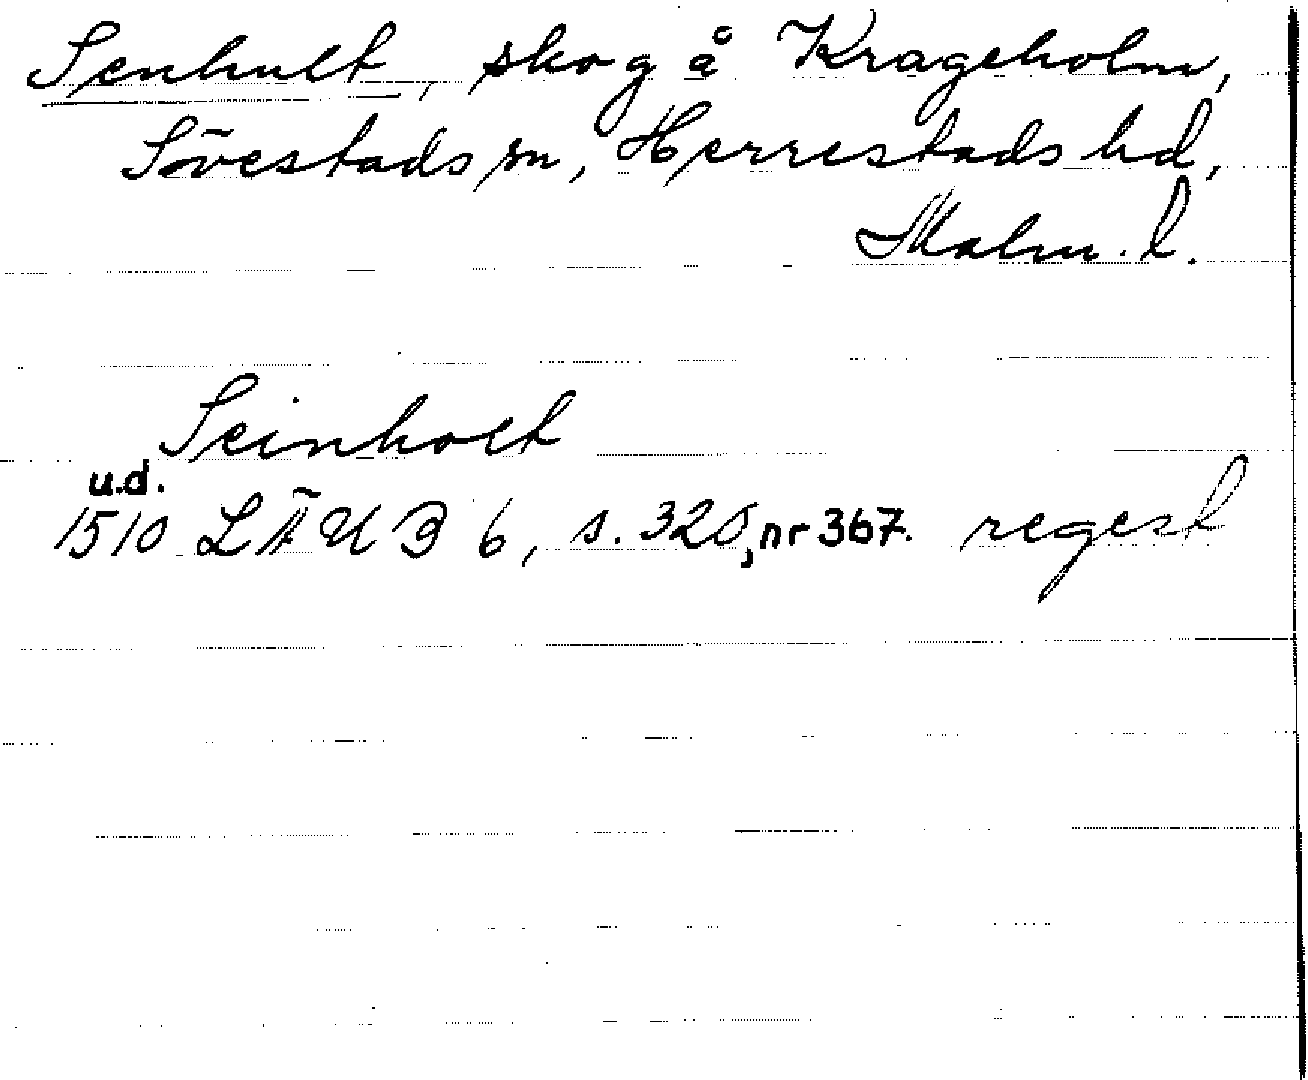 Senhult, skog å Krageholm,
Sövestads sn, Herrestads hd,
Malm. l.
Seinholt
u.d.
1510 LÄUB 6, s. 320, nr 367. regest